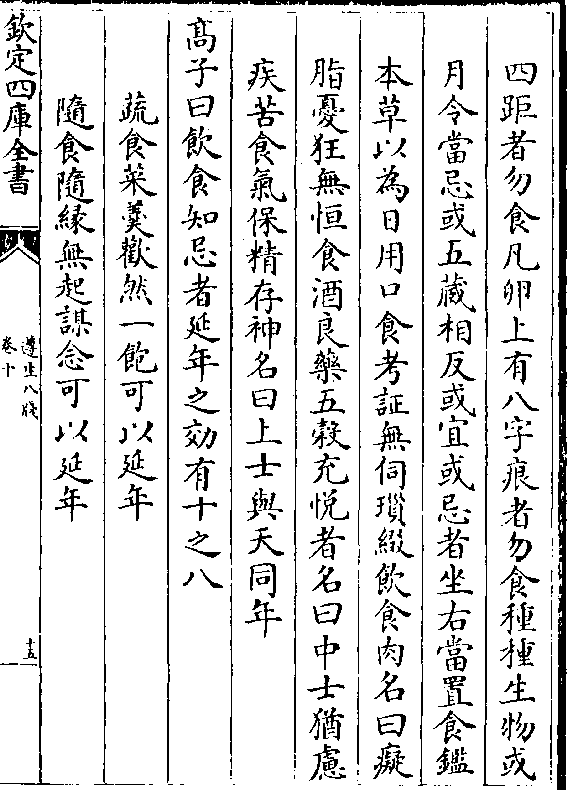 四距者勿食凡卵上有八字痕者勿食種種生物或
月令當忌或五藏相反或宜或忌者坐右當置食鑑
本草以為日用口食考証無伺瑣綴飲食肉名曰癡
脂憂狂無恒食酒良藥五榖充悦者名曰中士猶慮
疾苦食氣保精存神名曰上士與天同年
髙子曰飲食知忌者延年之効有十之八
蔬食菜羮歡然一飽可以延年
隨食隨縁無起謀念可以延年
欽定四庫全書
遵生八牋
卷十
十五